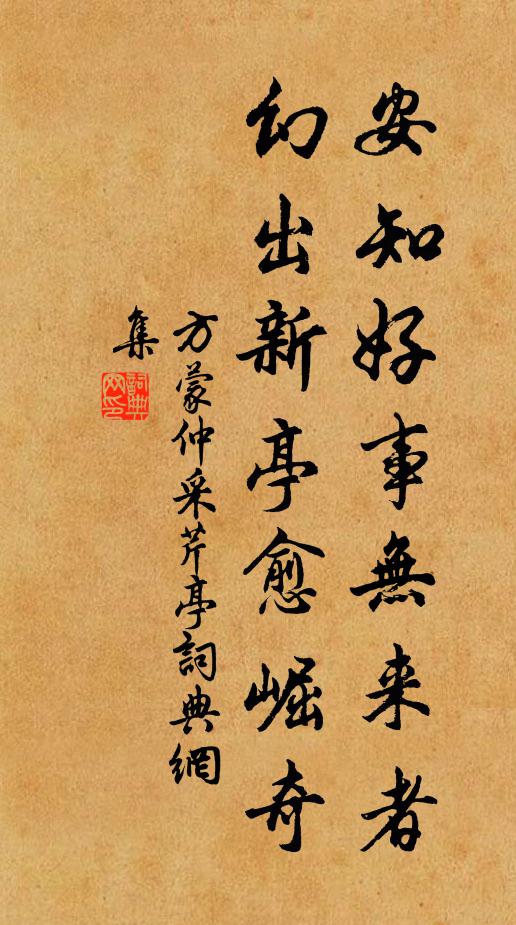 安知好事無来者
幻出新亭愈崛奇
方蒙仲采芹亭詞典網
集
詞典
网印